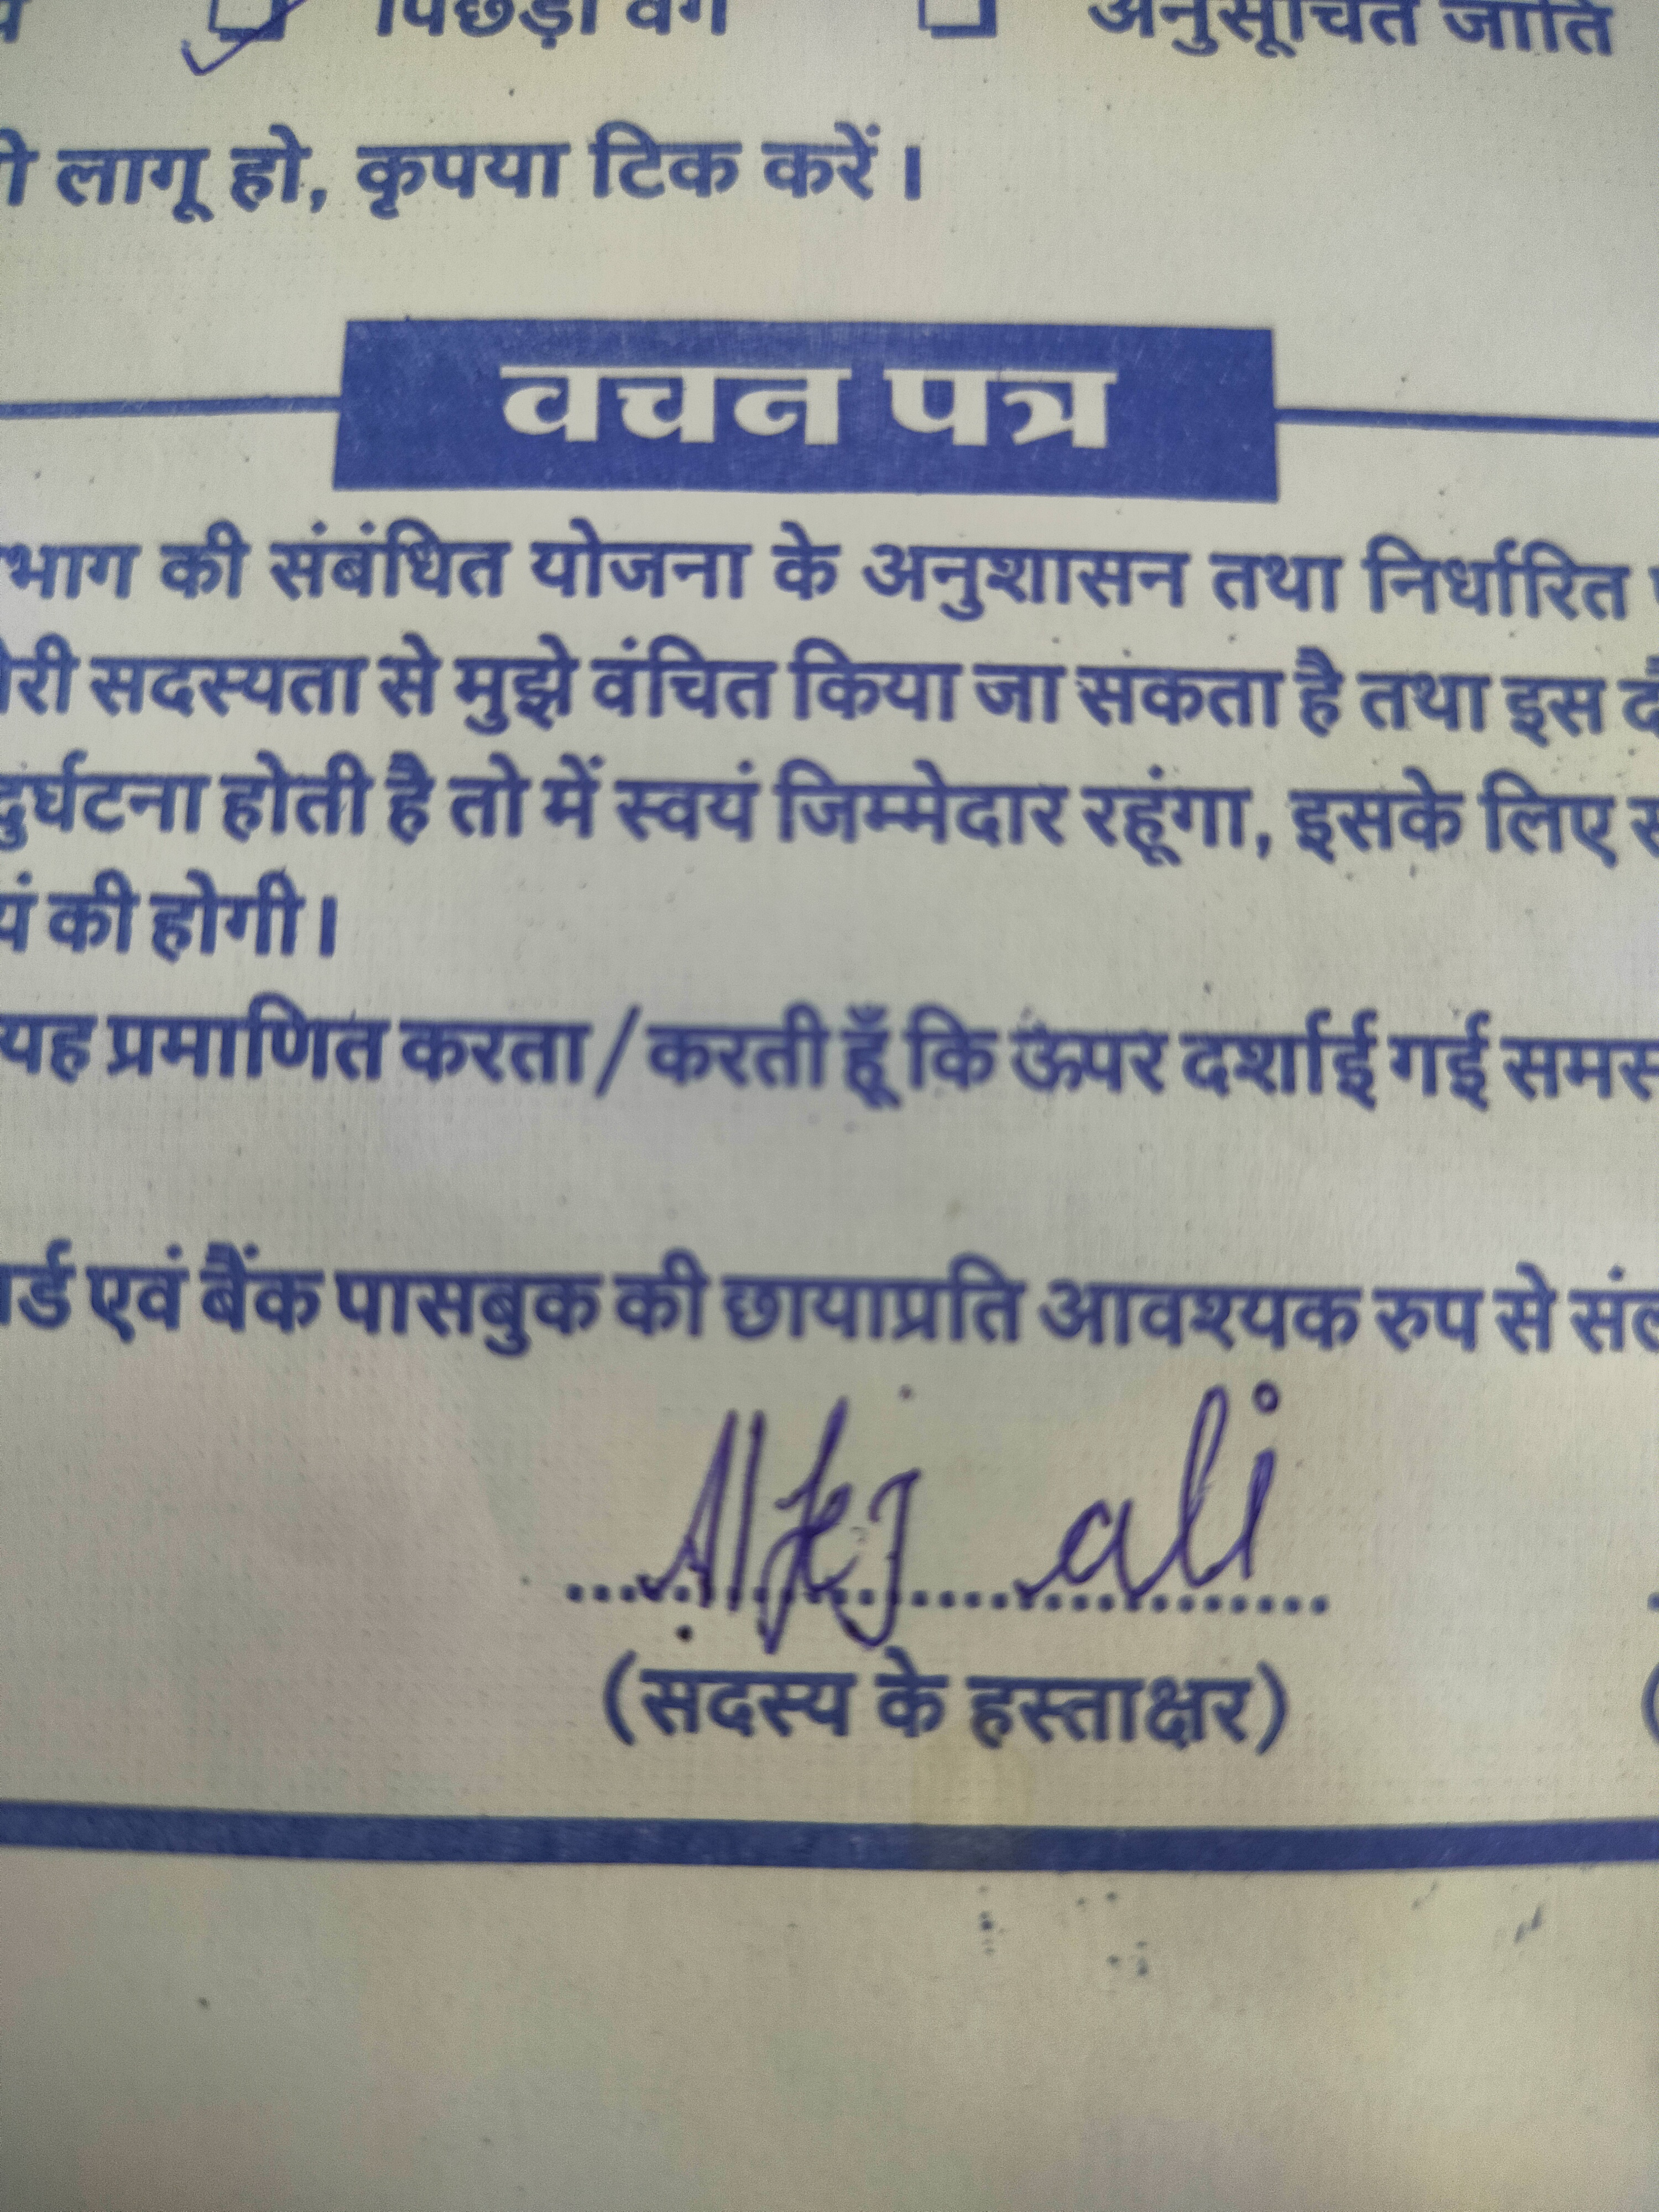 पिछड़ा वर्ग अनुसूचित जाति
लागू हो, कृपया टिक करें।
वचन पत्र
भाग की संबंधित योजना के अनुशासन तथा निर्धारित
री सदस्यता से मुझे वंचित किया जा सकता है तथा इस
दुर्घटना होती है तो में स्वयं जिम्मेदार रहूंगा, इसके लिए
यं की होगी।
यह प्रमाणित करता/करती हूँ कि ऊपर दर्शाई गई समस
र्ड एवं बैंक पासबुक की छायाप्रति आवश्यक रुप से
ali
(सदस्य के हस्ताक्षर)